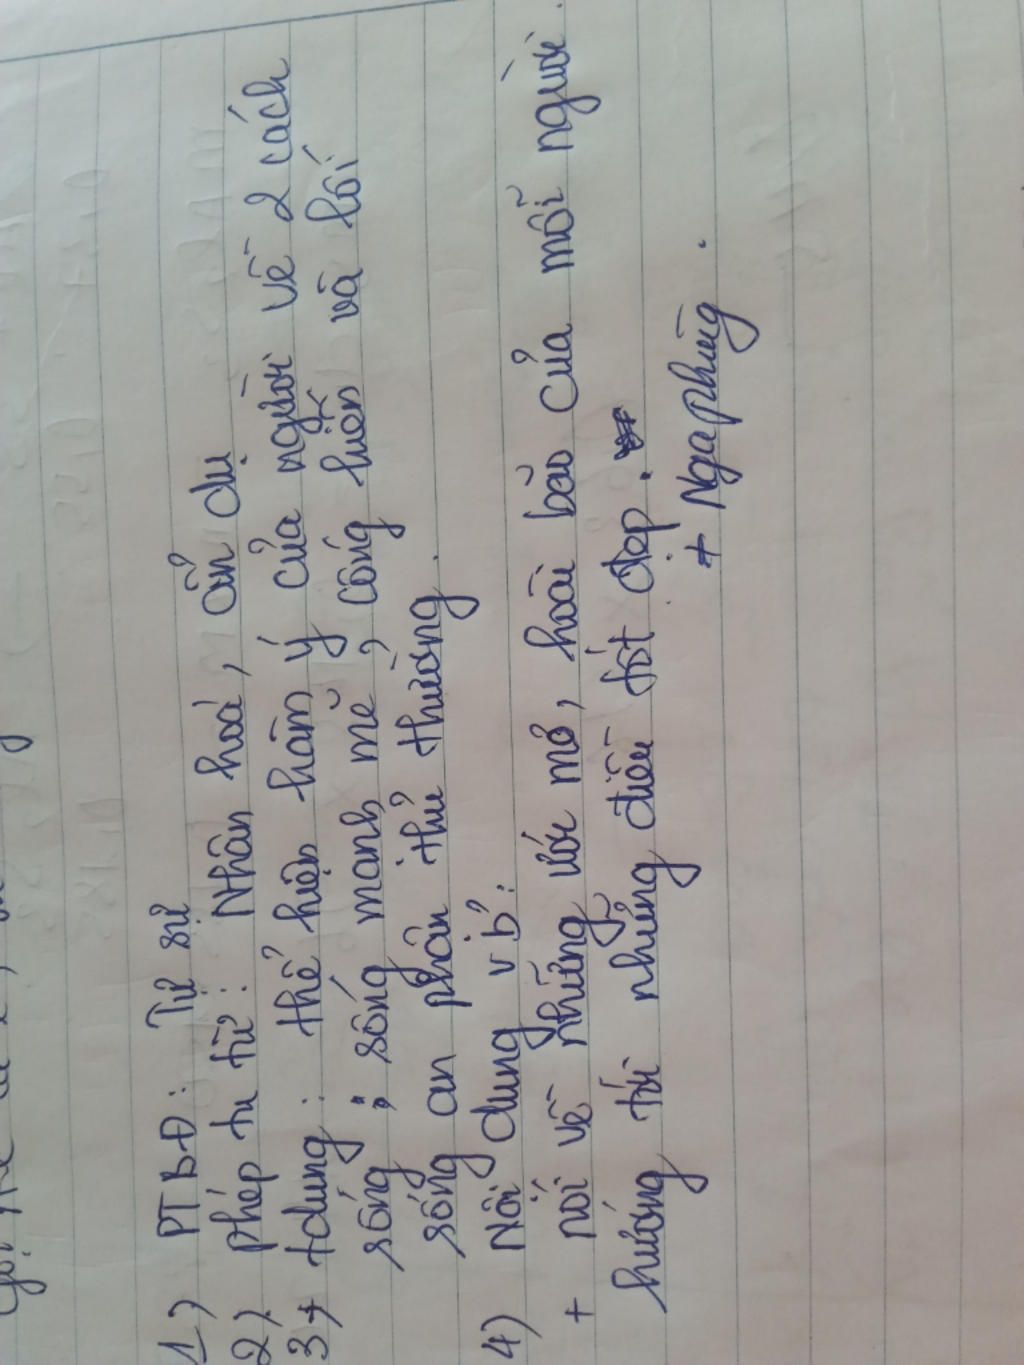 1) PTBĐ: Tự sự
2) phép tu từ: Nhân hoá, ẩn dụ
3) tdụng: thể hiện hàm ý của người về 2 cách
sống : sống mạnh mẽ, cống hiến và lối
sống an phận thủ thường.
4) Nội dung vb:
+ nói về những ước mơ, hoài bão của mỗi người.
hướng tới những điều tốt đẹp.
+ Ngaphung.